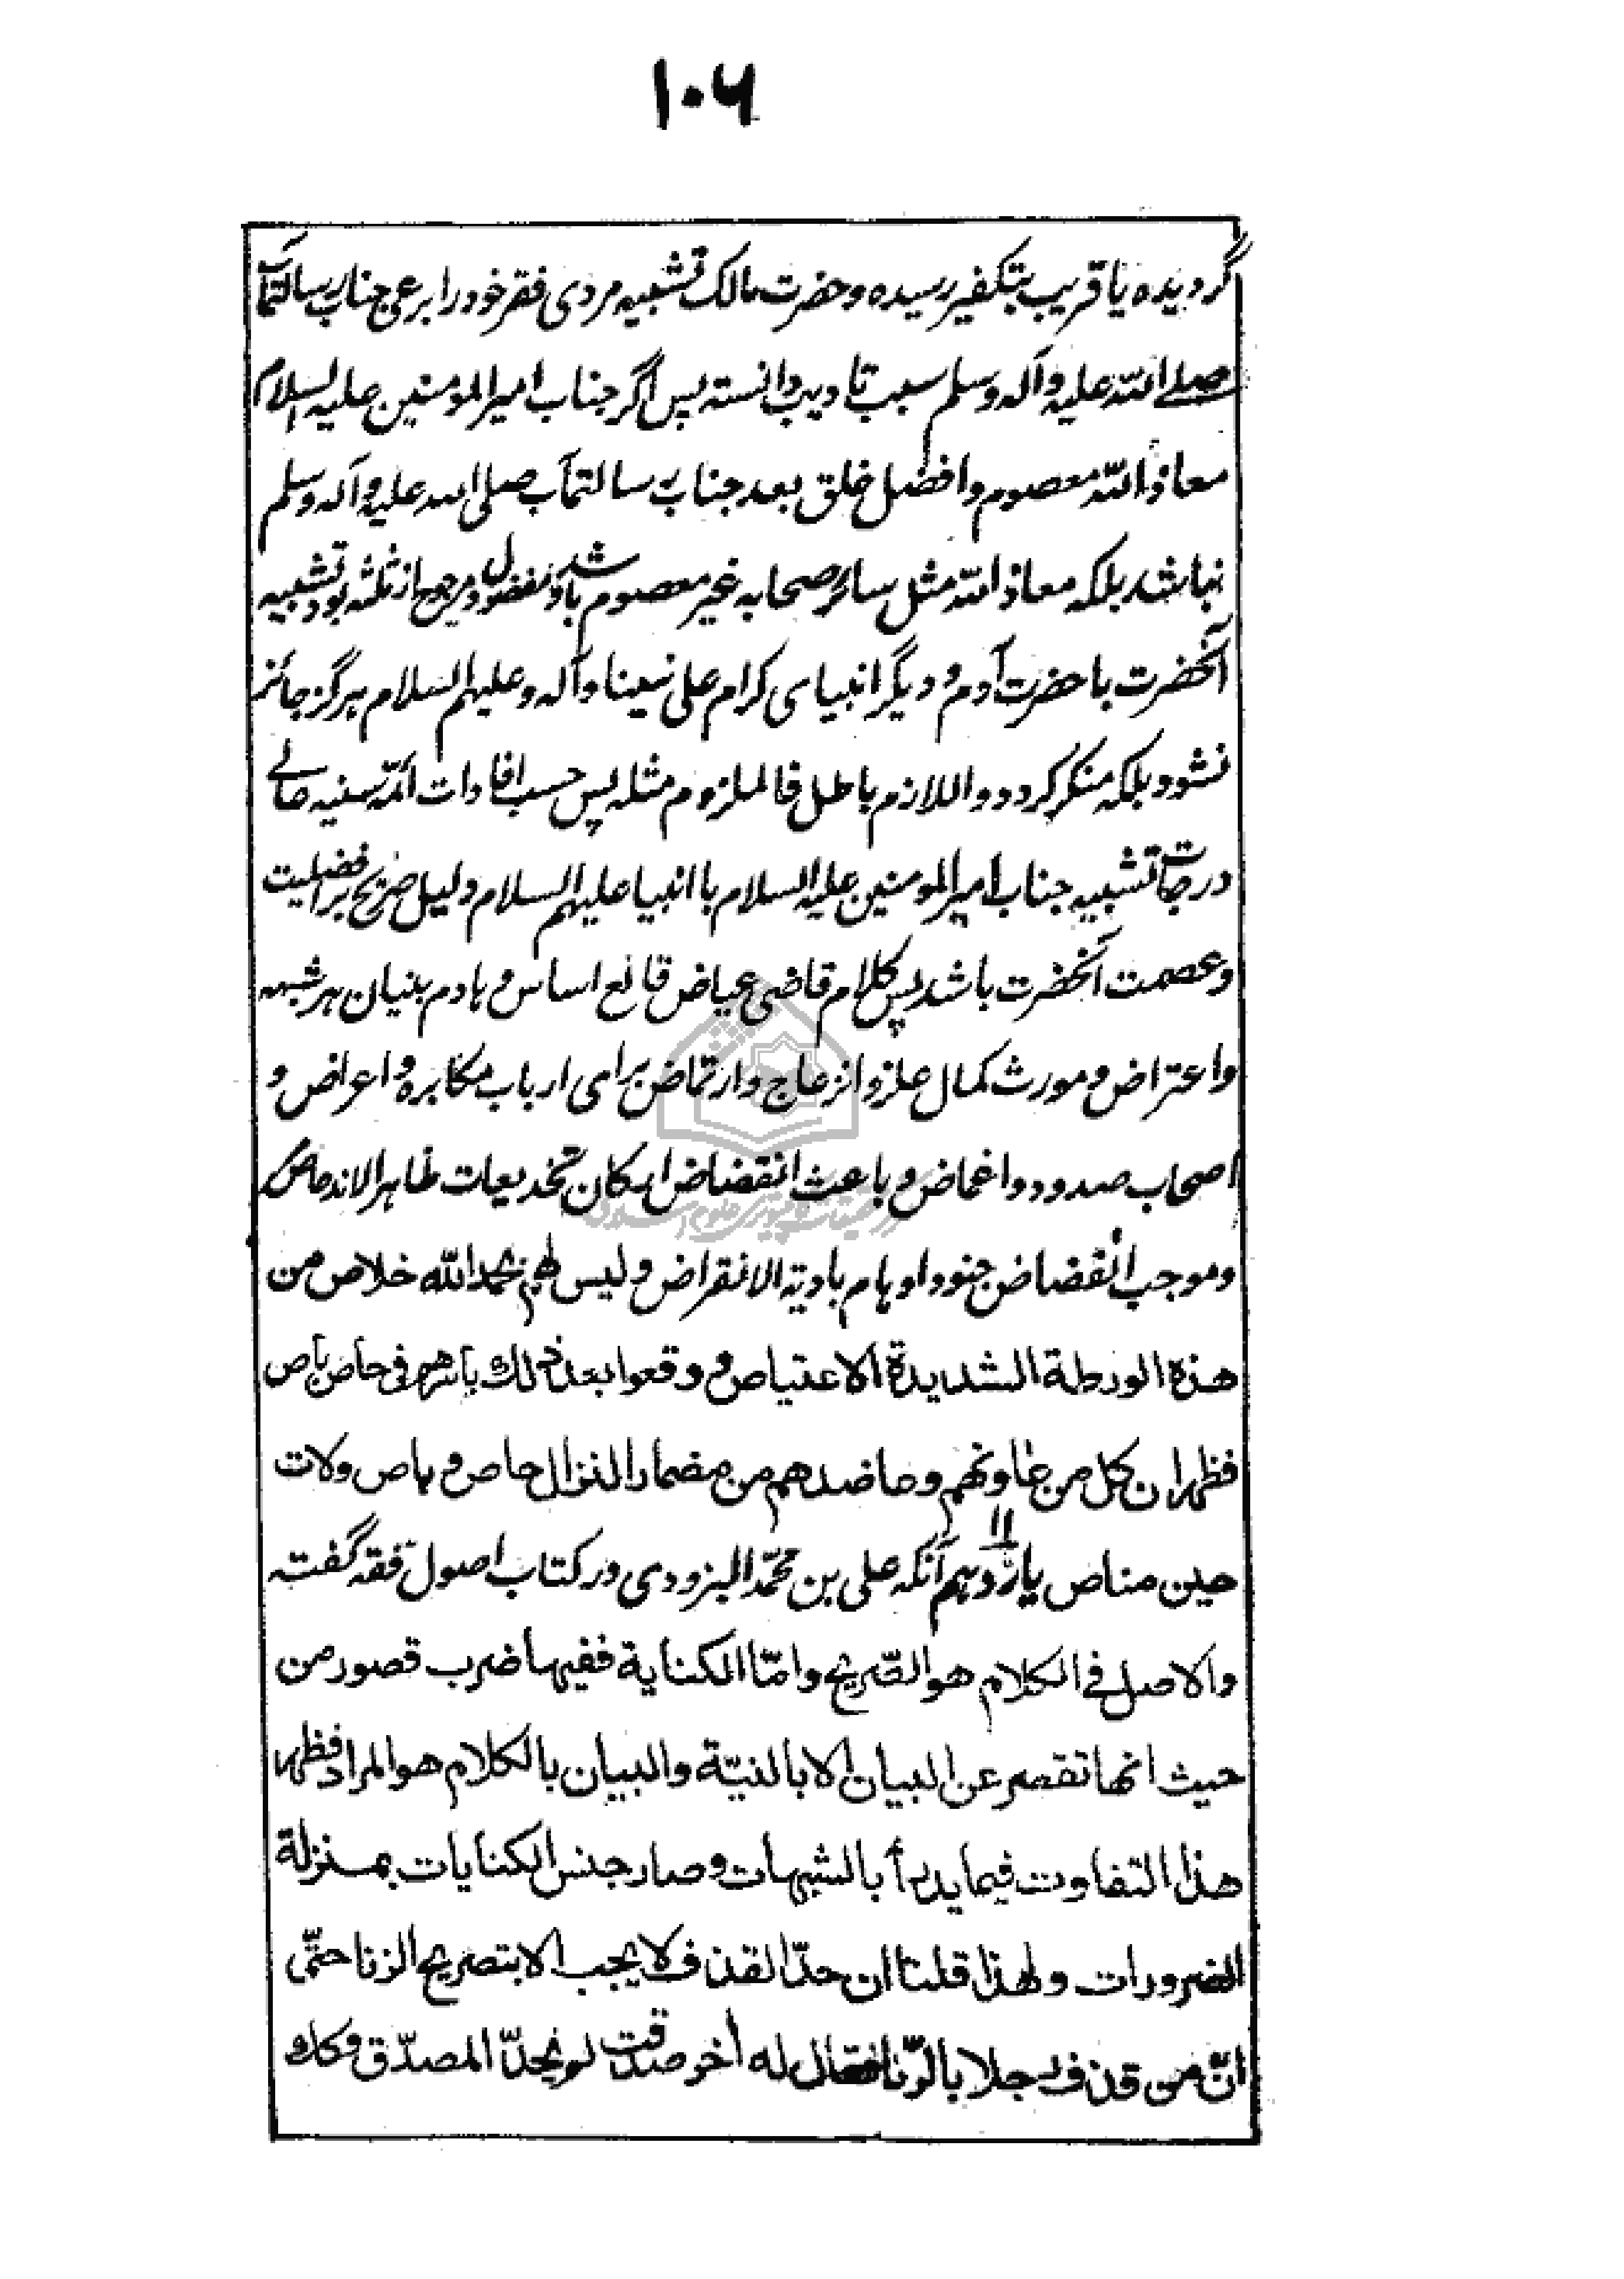 ۱۰۶
گردیده یا قریب بتکفیر رسیده و حضرت مالک تشبیه مردی فقر خود را برعی جناب رسالتمآب
صلے اللّه علیه وآله وسلم سبب تادیب دانسته پس اگر جناب امیر المومنین علیه السلام
معاذ اللّه معصوم و افضل خلق بعد جناب رسالتمآب صلی الله علیه وآله وسلم
نباشد بلکه معاذ اللّه مثل سائر صحابه غیر معصوم باشد و مفضول و مرجوح از ثلثه بود تشبیه
آنحضرت با حضرت آدم و دیگر انبیای کرام علی نبینا وآله وعلیهم السلام هرگز جائز
نشود و بلکه منکر گردد و اللازم باطل فالملزوم مثله پس حسب افادات ائمّه سنیه صانے
درجات تشبیه جناب امیر المومنین علیه السلام با انبیا علیهم السلام دلیل صریح بر افضلیت
و عصمت آنحضرت باشد پس کلام قاضی عیاض قالع اساس و هادم بنیان هر شبهه
و اعتراض و مورث کمال علز و انزعاج و ارتماض برای ارباب مکابره و اعراض و
اصحاب صدود و اغماض و باعث انقضاض ارکان تخدیعات ظاهر الاندحاض
و موجب انفضاض جنود اوهام بادیة الانقراض ولیس لهم بحمد الله خلاص من
هذه الورطة الشدیدة الاعتیاص و وقعوا بعد ذلك باسرهم فی حاص باص
فظهر ان کل من عاونهم و عاضدهم من مضمار النزال حاص و باص ولات
حین مناص یازدهم ۱۱ آنکه علی بن محمّد البزودی در کتاب اصول فقه گفته
والاصل فی الکلام هو الصّریح وامّا الکنایة ففیها ضرب قصور من
حیث انها تقصر عن البیان الا بالنیّة والبیان بالکلام هو المراد فظهر
هذا التفاوت فیما یدرأ بالشبهات وصار جنس الکنایات بمنزلة
الضرورات ولهذا قلنا ان حدّ القذف لا یجب الا بتصریح الزنا حتّی
انّ من قذف رجلا بالزّنا فقال له آخر صدقت لم نحدّ المصدّق وکذلك